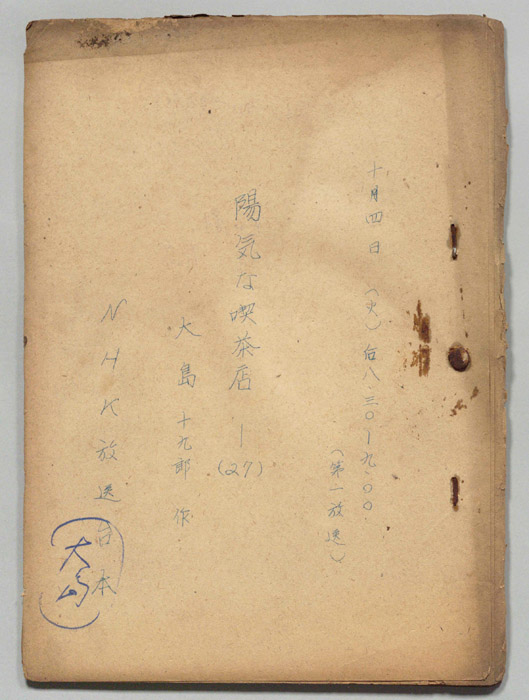 十月四日（火）后八・三〇ー九・〇〇
（第一放送）
陽気な喫茶店ー（27）
大島十九郎作
NHK放送台本
大島